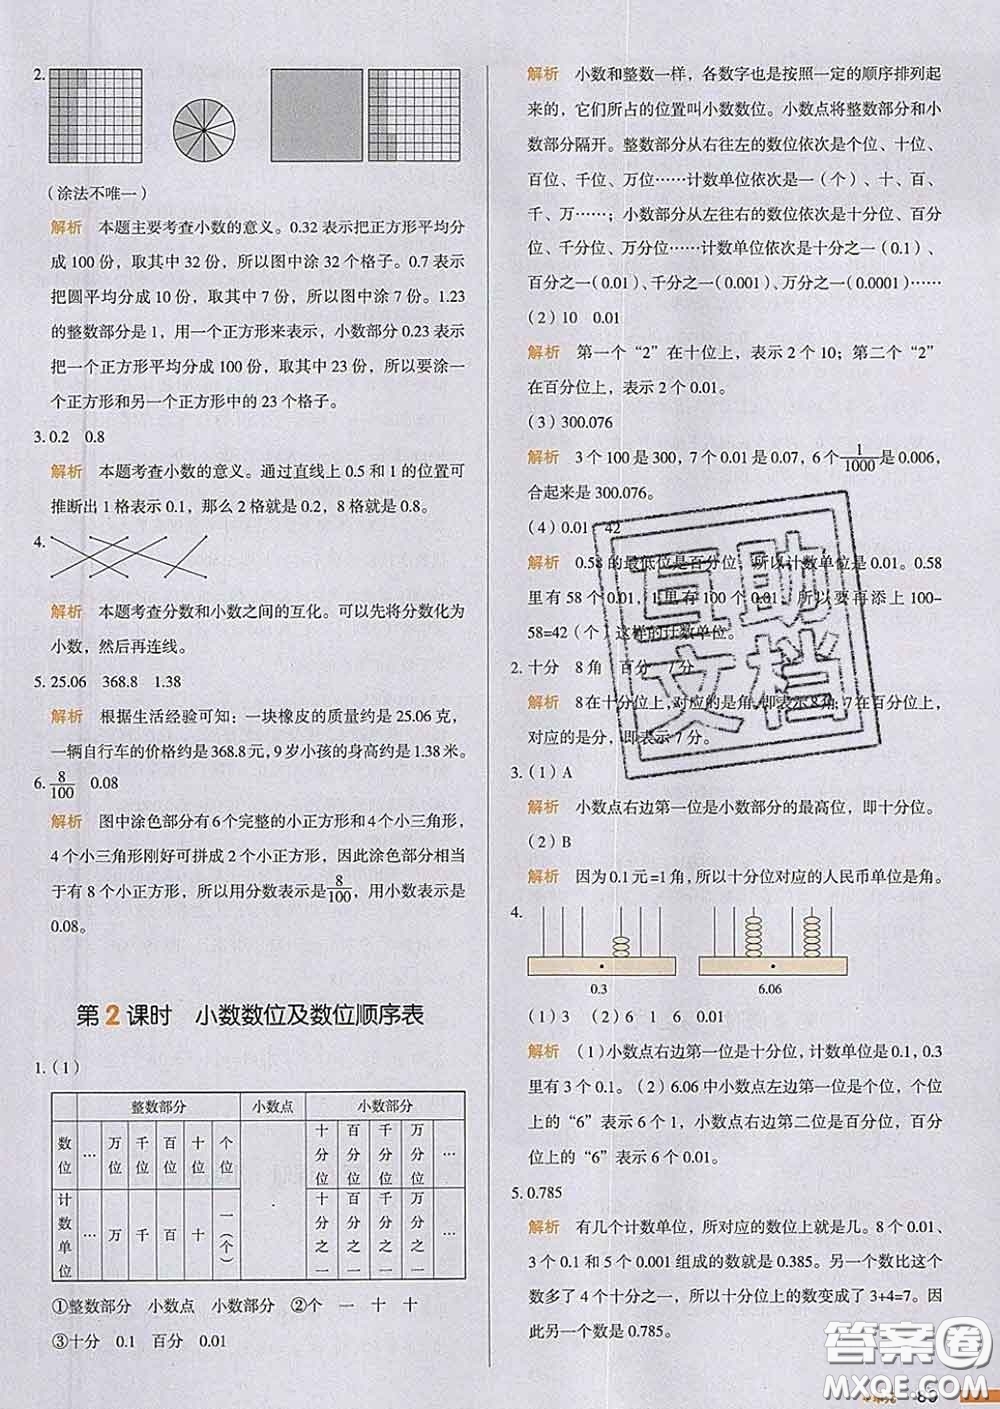 2.
（涂法不唯一）
解析 本题主要考查小数的意义。0.32 表示把正方形平均分
成 100 份，取其中 32 份，所以图中涂 32 个格子。0.7 表示
把圆平均分成 10 份，取其中 7 份，所以图中涂 7 份。1.23
的整数部分是 1，用一个正方形来表示，小数部分 0.23 表示
把一个正方形平均分成 100 份，取其中 23 份，所以要涂一
个正方形和另一个正方形中的 23 个格子。
3. 0.2 0.8
解析 本题考查小数的意义。通过直线上 0.5 和 1 的位置可
推断出 1 格表示 0.1，那么 2 格就是 0.2，8 格就是 0.8。
4.
解析 本题考查分数和小数之间的互化。可以先将分数化为
小数，然后再连线。
5. 25.06 368.8 1.38
解析 根据生活经验可知：一块橡皮的质量约是 25.06 克，
一辆自行车的价格约是 368.8 元，9 岁小孩的身高约是 1.38 米。
6. 8/100 0.08
解析 图中涂色部分有 6 个完整的小正方形和 4 个小三角形，
4 个小三角形刚好可拼成 2 个小正方形，因此涂色部分相当
于有 8 个小正方形，所以用分数表示是 8/100，用小数表示是
0.08。
第 2 课时 小数数位及数位顺序表
1.（1）
整数部分 小数点 小数部分
数位 … 万位 千位 百位 十位 个位 · 十分位 百分位 千分位 万分位 …
计数单位 … 万 千 百 十 一（个） 十分之一 百分之一 千分之一 万分之一 …
①整数部分 小数点 小数部分 ②个 一 十 十
③十分 0.1 百分 0.01
解析 小数和整数一样，各数字也是按照一定的顺序排列起
来的，它们所占的位置叫小数数位。小数点将整数部分和小
数部分隔开。整数部分从右往左的数位依次是个位、十位、
百位、千位、万位……计数单位依次是一（个）、十、百、
千、万……；小数部分从左往右的数位依次是十分位、百分
位、千分位、万分位……计数单位依次是十分之一（0.1）、
百分之一（0.01）、千分之一（0.001）、万分之一（0.0001）……
（2）10 0.01
解析 第一个“2”在十位上，表示 2 个 10；第二个“2”
在百分位上，表示 2 个 0.01。
（3）300.076
解析 3 个 100 是 300，7 个 0.01 是 0.07，6 个 1/1000 是 0.006，
合起来是 300.076。
（4）0.01 42
解析 0.58 的最低位是百分位，所以计数单位是 0.01。0.58
里有 58 个 0.01，1 里有 100 个 0.01。所以要再添上 100-
58=42（个）这样的计数单位。
2. 十分 8 角 百分 7 分
解析 8 在十分位上，对应的是角，即表示 8 角；7 在百分位上，
对应的是分，即表示 7 分。
3.（1）A
解析 小数点右边第一位是小数部分的最高位，即十分位。
（2）B
解析 因为 0.1 元=1 角，所以十分位对应的人民币单位是角。
4.
0.3 6.06
（1）3 （2）6 1 6 0.01
解析 （1）小数点右边第一位是十分位，计数单位是 0.1，0.3
里有 3 个 0.1。（2）6.06 中小数点左边第一位是个位，个位
上的“6”表示 6 个 1，小数点右边第二位是百分位，百分
位上的“6”表示 6 个 0.01。
5. 0.785
解析 有几个计数单位，所对应的数位上就是几。8 个 0.01、
3 个 0.1 和 5 个 0.001 组成的数就是 0.385。另一个数比这个
数多了 4 个十分之一，所以十分位上的数变成了 3+4=7。因
此另一个数是 0.785。
互助
文档
答案圈
MXQE.COM